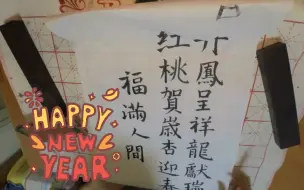 鳳呈祥龍獻瑞
紅桃賀歲杏迎春
福滿人間
HAPPY
NEW
YEAR